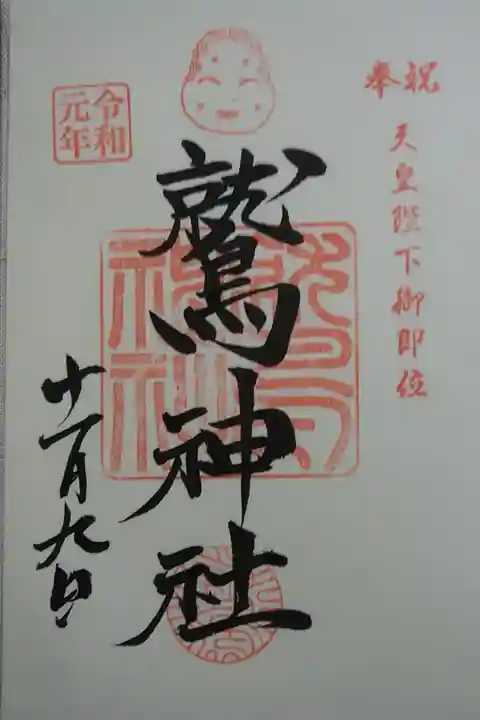 奉祝
天皇陛下御即位
鷲神社
令和
元年
十一月九日